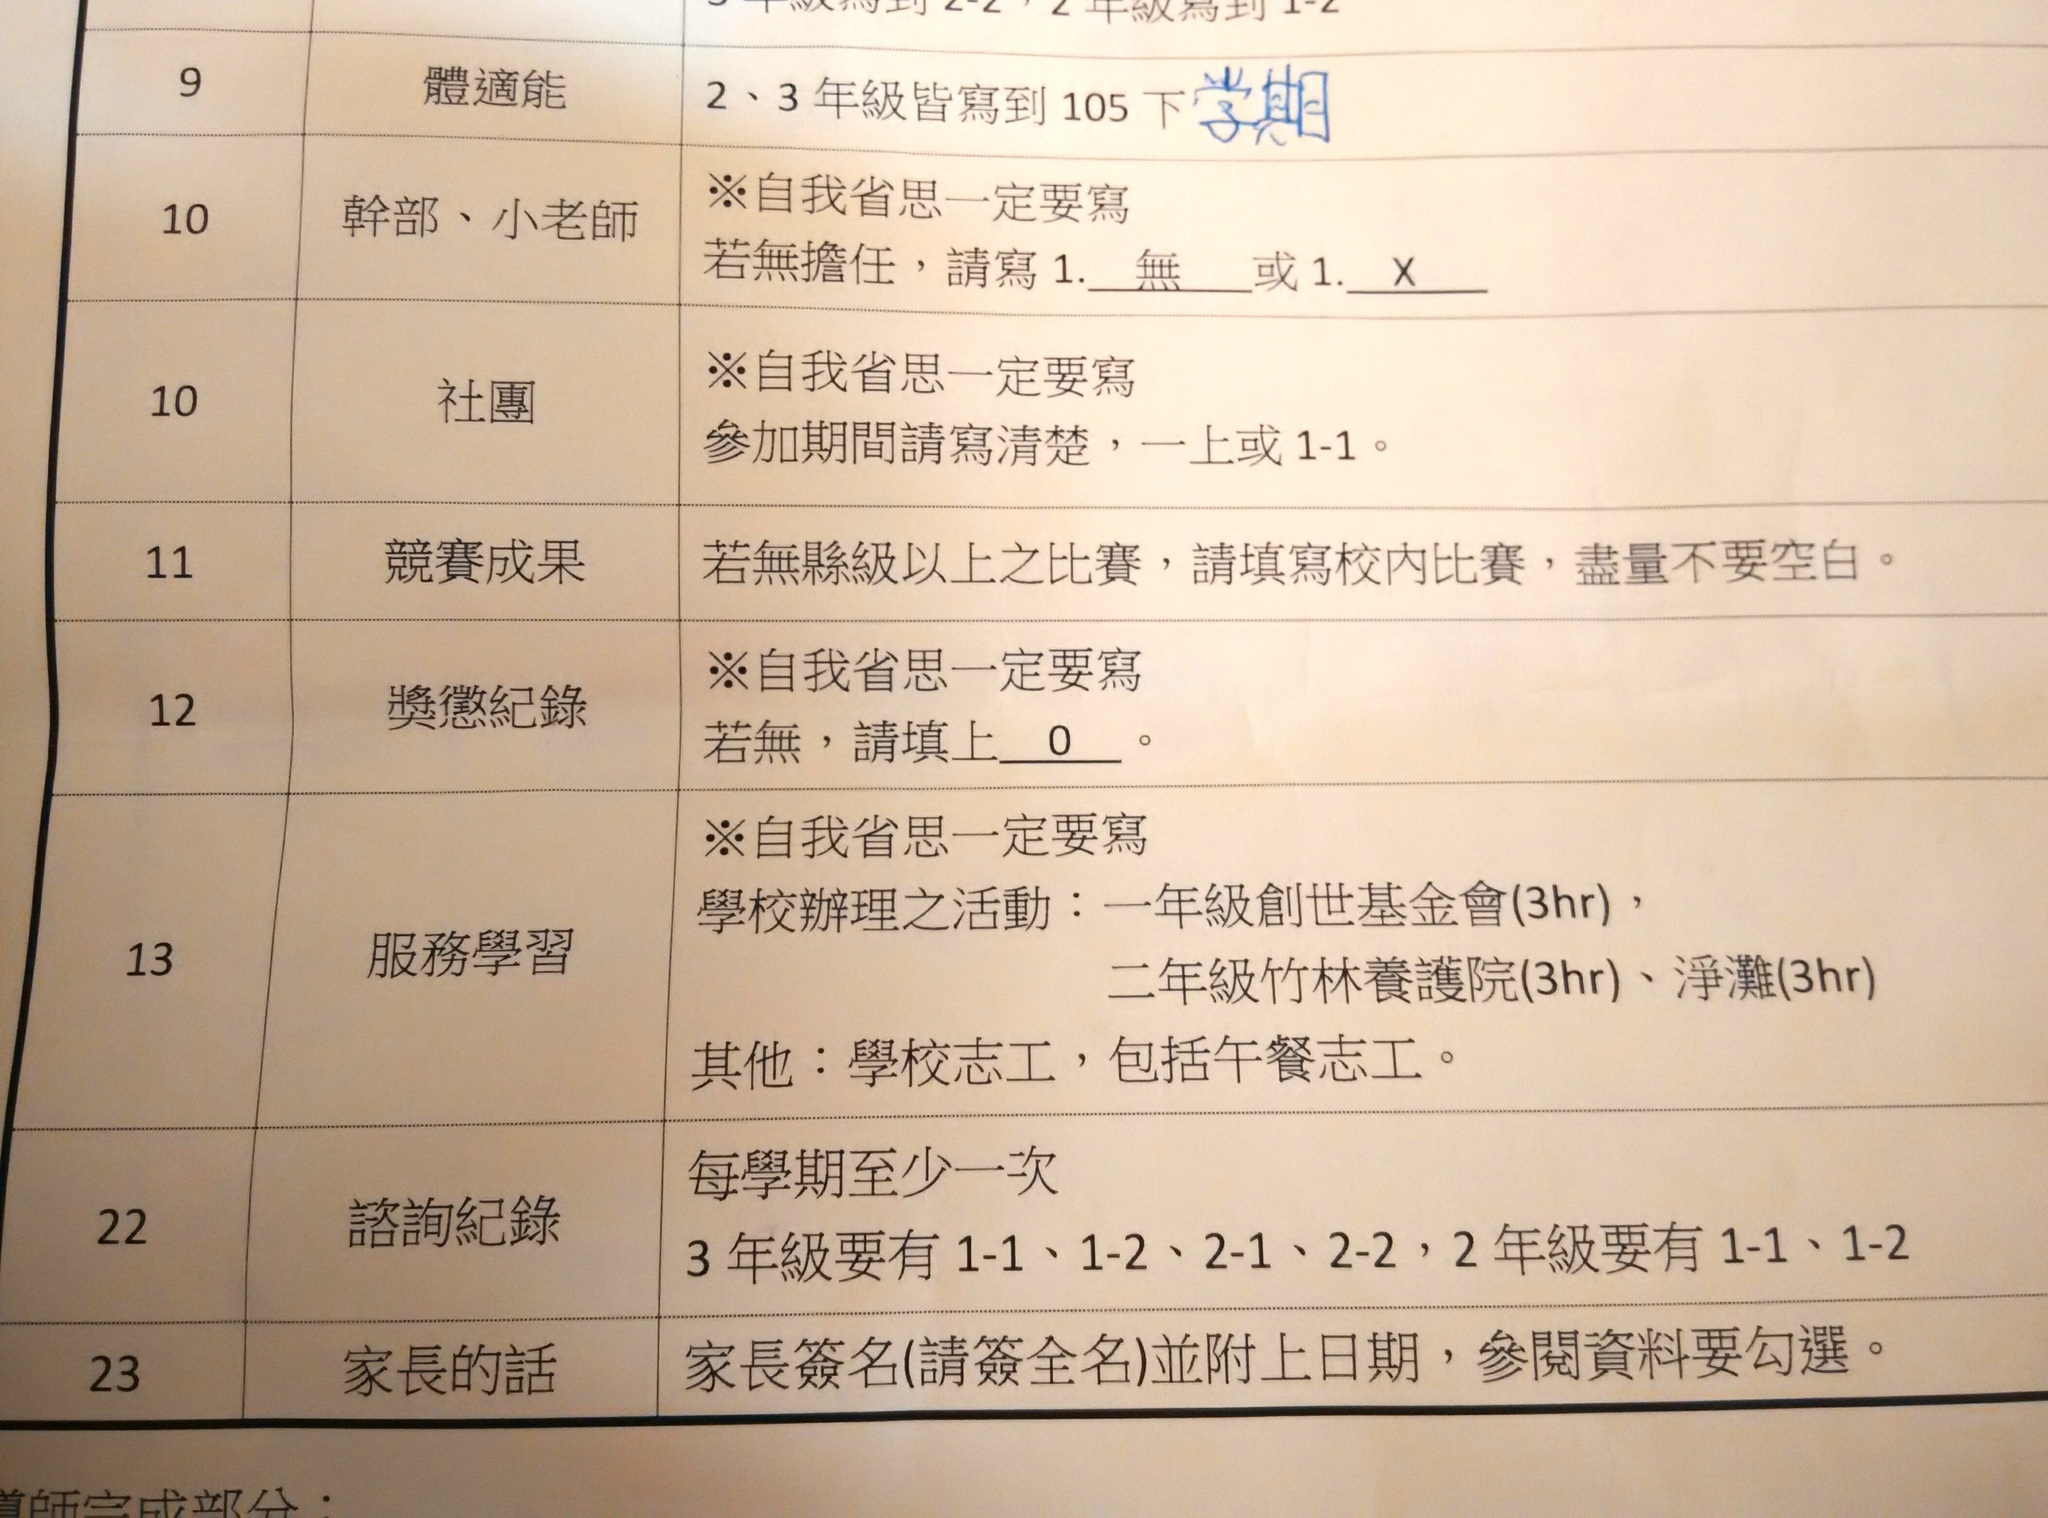 3 年級寫到 2-2，2 年級寫到 1-2
9 體適能 2、3 年級皆寫到 105 下学期
10 幹部、小老師 ※自我省思一定要寫
若無擔任，請寫 1. 無 或 1. X
10 社團 ※自我省思一定要寫
參加期間請寫清楚，一上或 1-1。
11 競賽成果 若無縣級以上之比賽，請填寫校內比賽，盡量不要空白。
12 獎懲紀錄 ※自我省思一定要寫
若無，請填上 0 。
13 服務學習 ※自我省思一定要寫
學校辦理之活動：一年級創世基金會(3hr)，
二年級竹林養護院(3hr)、淨灘(3hr)
其他：學校志工，包括午餐志工。
22 諮詢紀錄 每學期至少一次
3 年級要有 1-1、1-2、2-1、2-2，2 年級要有 1-1、1-2
23 家長的話 家長簽名(請簽全名)並附上日期，參閱資料要勾選。
導師完成部分：